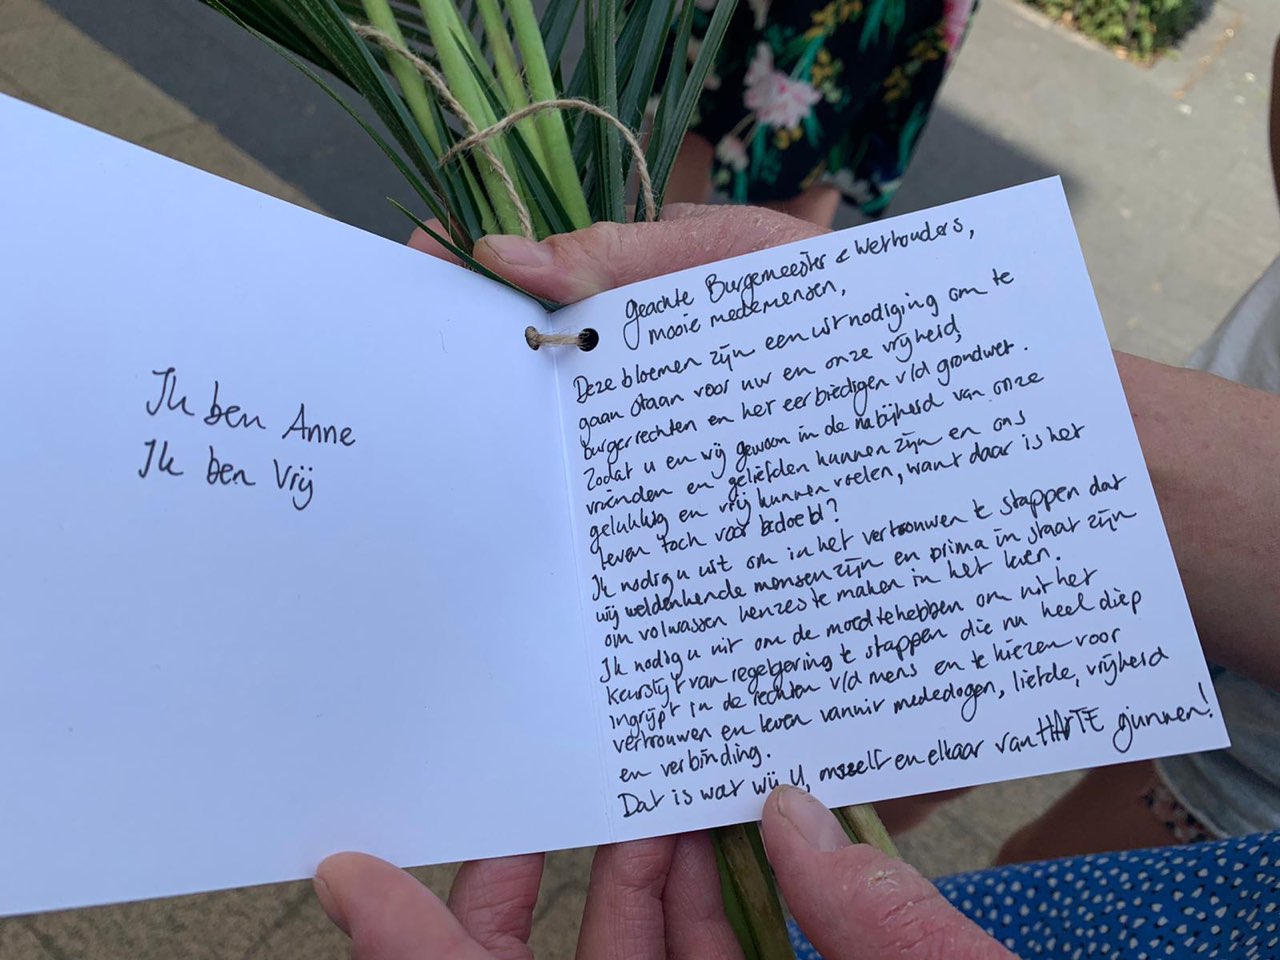 Ik ben Anne
Ik ben Vrij
Geachte Burgemeester & Wethouders,
mooie medemensen,
Deze bloemen zijn een uitnodiging om te
gaan staan voor uw en onze vrijheid,
burgerrechten en het eerbiedigen v/d grondwet.
Zodat u en wij gewoon in de nabijheid van onze
vrienden en geliefden kunnen zijn en ons
gelukkig en vrij kunnen voelen, want daar is het
leven toch voor bedoeld?
Ik nodig u uit om in het vertrouwen te stappen dat
wij weldenkende mensen zijn en prima in staat zijn
om volwassen keuzes te maken in het leven.
Ik nodig u uit om de moed te hebben om uit het
keurslijf van regelgeving te stappen die nu heel diep
ingrijpt in de rechten v/d mens en te kiezen voor
vertrouwen en leven vanuit mededogen, liefde, vrijheid
en verbinding.
Dat is wat wij U, onszelf en elkaar van HARTE gunnen!